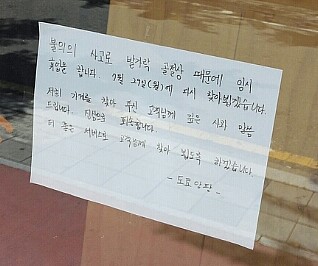 불의의 사고로 발가락 골절상 때문에 임시
휴업을 합니다. 7월 27일(월)에 다시 찾아뵙겠습니다.
저희 가게를 찾아 주신 고객님께 깊은 사과 말씀
드립니다. 진심으로 죄송합니다.
더 좋은 서비스로 고객님께 찾아 뵙도록 하겠습니다.